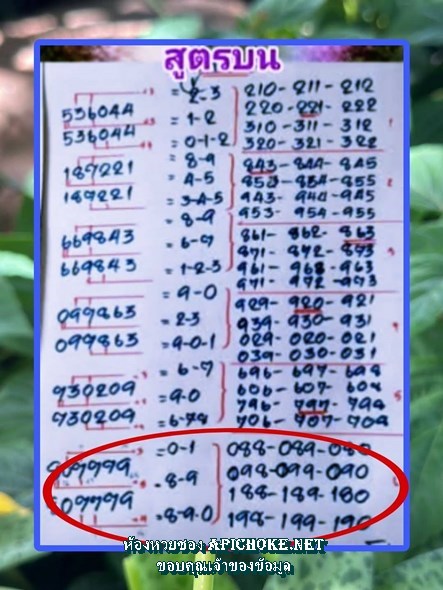 สูตรบน
= 2-3 210-211-212
536044 220-221-222
= 1-2 310-311-312
536044
= 0-1-2 320-321-322
= 8-9 843-844-845
187221
= 4-5 853-854-855
187221 943-944-945
= 3-4-5 953-954-955
= 8-9
669843 861-862-863
= 6-7 871-872-873
669843 961-962-963
= 1-2-3 971-972-973
= 9-0 929-920-921
099863
= 2-3 939-930-931
099863 029-020-021
= 9-0-1 039-030-031
= 6-7 696-697-698
930209 606-607-608
= 9-0 796-797-798
930209
= 6-78 706-707-708
= 0-1 088-089-080
- 8-9 098-099-090
188-189-180
= 8-9-0 198-199-190
ห้องหวยซอง APICHOKE.NET
ขอบคุณเจ้าของข้อมูล